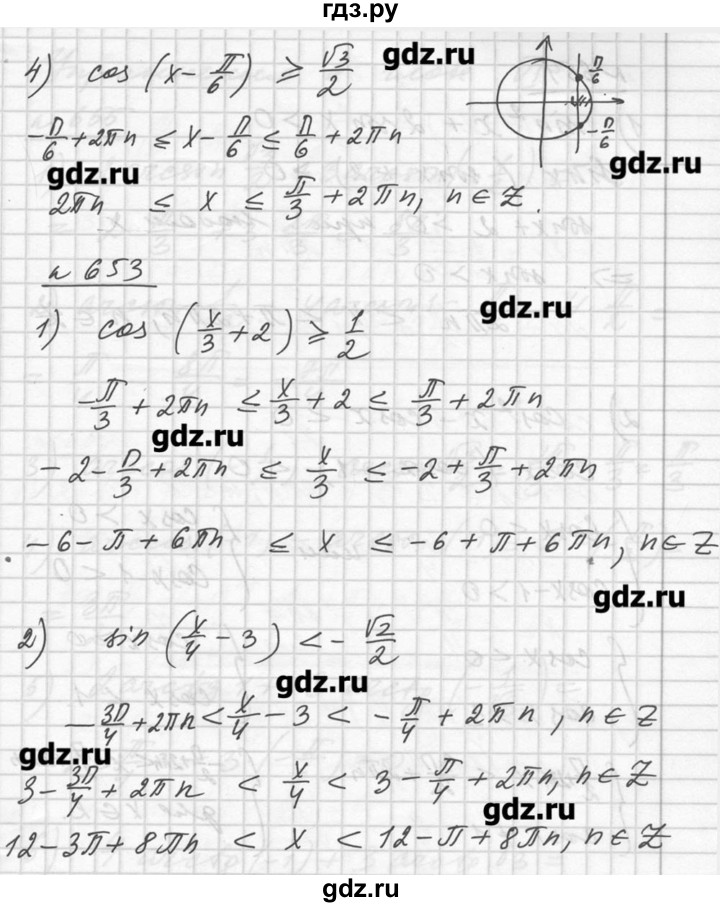 гдз.ру
4) cos (x - π/6) ≥ √3/2
π/6
-π/6
gdz.ru
-π/6 + 2πn ≤ x - π/6 ≤ π/6 + 2πn
gdz.ru
gdz.ru
2πn ≤ x ≤ π/3 + 2πn, n ∈ Z.
n 653
gdz.ru
1) cos (x/3 + 2) ≥ 1/2
-π/3 + 2πn ≤ x/3 + 2 ≤ π/3 + 2πn
gdz.ru
-2 - π/3 + 2πn ≤ x/3 ≤ -2 + π/3 + 2πn
-6 - π + 6πn ≤ x ≤ -6 + π + 6πn, n ∈ Z
gdz.ru
2) sin (x/4 - 3) < -√2/2
gdz.ru
-3π/4 + 2πn < x/4 - 3 < -π/4 + 2πn, n ∈ Z
gdz.ru
3 - 3π/4 + 2πn < x/4 < 3 - π/4 + 2πn, n ∈ Z
gdz.ru
12 - 3π + 8πn < x < 12 - π + 8πn, n ∈ Z
gdz.ru